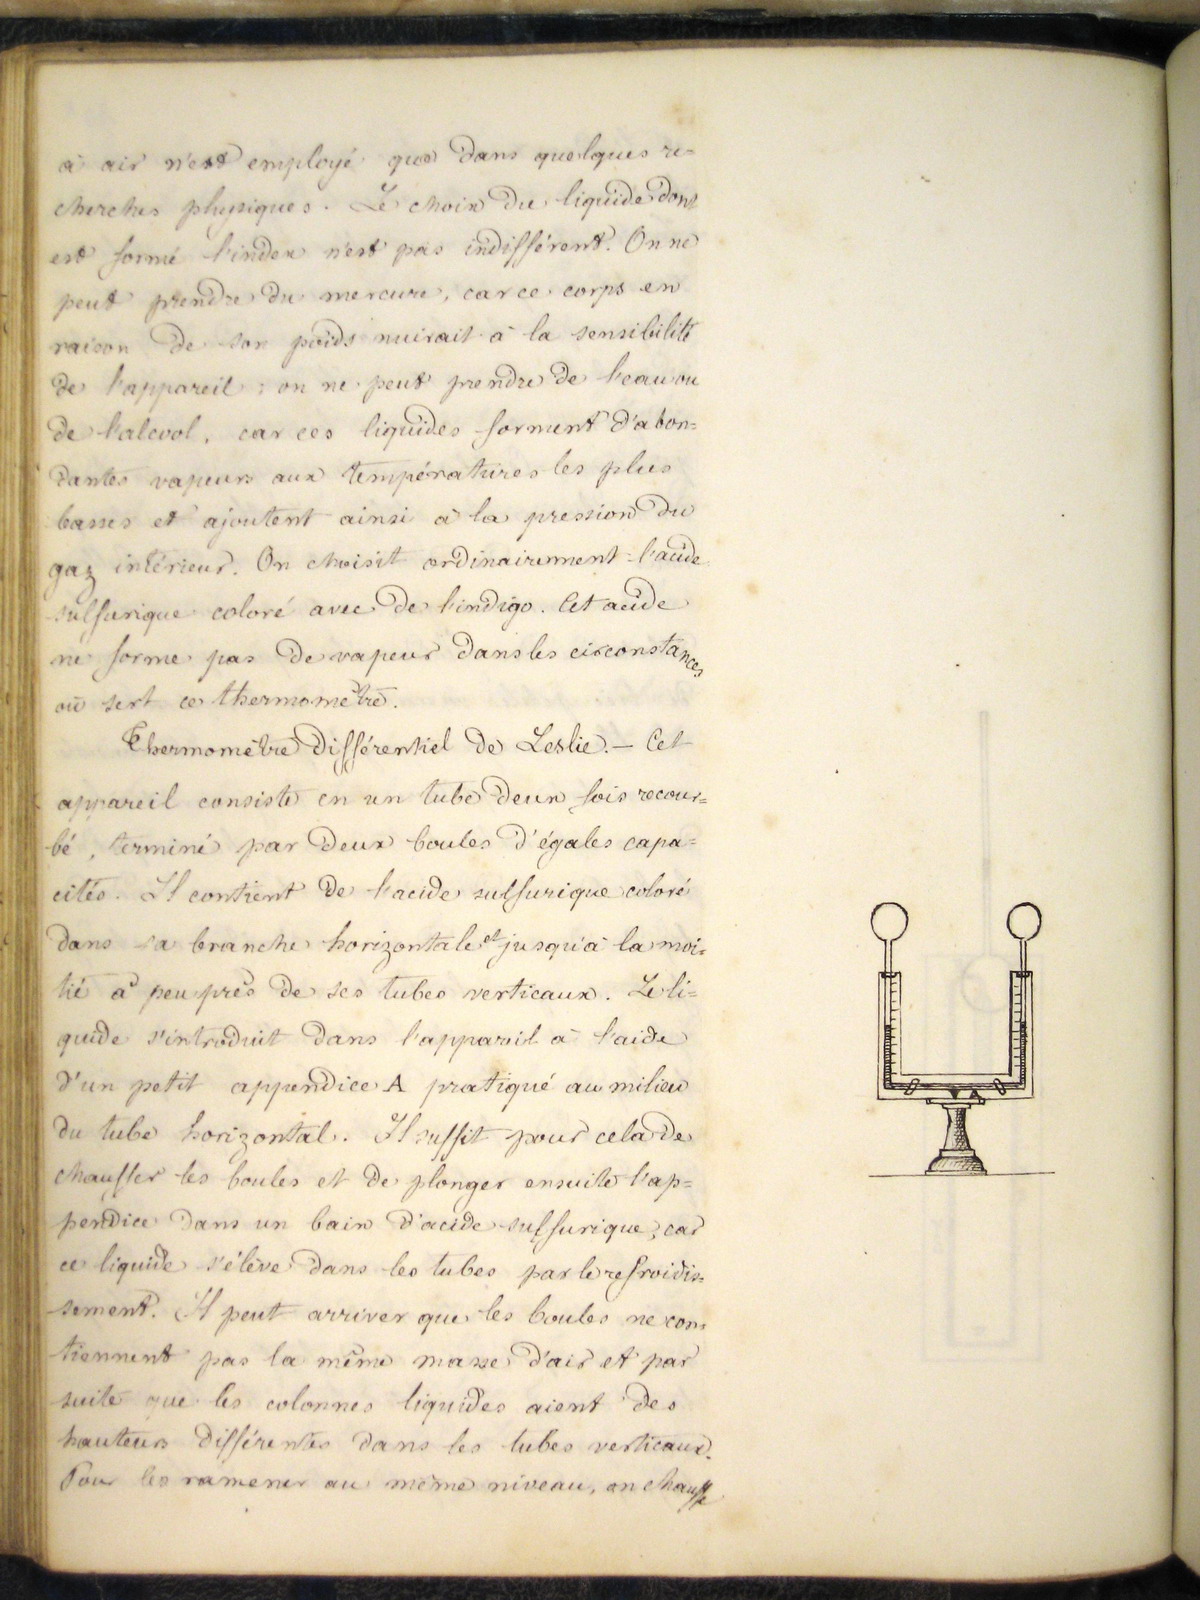 à air n'est employé que dans quelques re=
cherches physiques. Le choix du liquide dont
est formé l'index n'est pas indifférent. On ne
peut prendre du mercure, car ce corps en
raison de son poids nuirait à la sensibilité
de l'appareil ; on ne peut prendre de l'eau ou
de l'alcool, car ces liquides forment d'abon=
dantes vapeurs aux températures les plus
basses et ajoutent ainsi à la pression du
gaz intérieur. On choisit ordinairement l'acide
sulfurique coloré avec de l'indigo. Cet acide
ne forme pas de vapeur dans les circonstances
où sert ce thermomètre.
Thermomètre différentiel de Leslie. — Cet
appareil consiste en un tube deux fois recour=
bé, terminé par deux boules d'égales capa=
cités. Il contient de l'acide sulfurique coloré
dans sa branche horizontale et jusqu'à la moi=
tié à peu près de ses tubes verticaux. Le li=
quide s'introduit dans l'appareil à l'aide
d'un petit appendice A pratiqué au milieu
du tube horizontal. Il suffit pour cela de
chauffer les boules et de plonger ensuite l'ap=
pendice dans un bain d'acide sulfurique, car
ce liquide s'élève dans les tubes par le refroidis=
sement. Il peut arriver que les boules ne con=
tiennent pas la même masse d'air et par
suite que les colonnes liquides aient des
hauteurs différentes dans les tubes verticaux.
Pour les ramener au même niveau, on chauffe
A